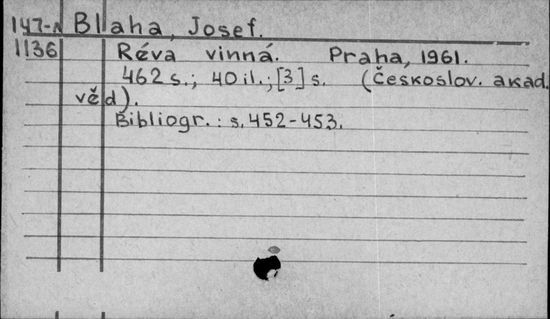 147-A Blaha, Josef.
1136 Réva vinná. Praha, 1961.
462 s.; 40 il.; [3] s. (Českoslov. akad.
věd).
Bibliogr.: s. 452-453.